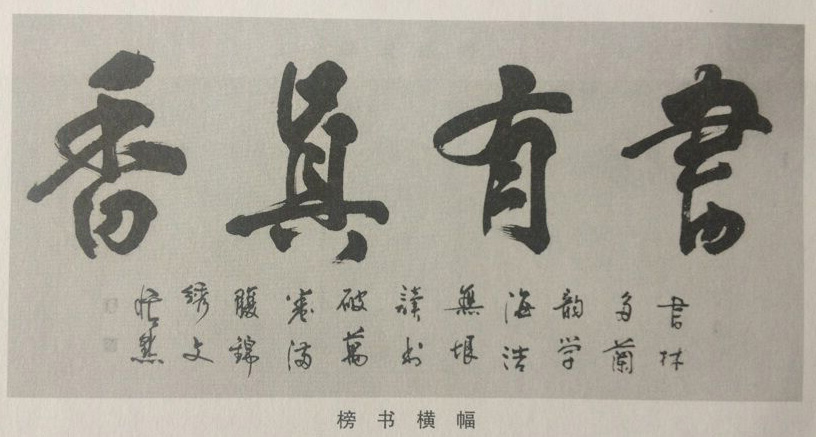 書有真香
書林
多蘭
韵学
海浩
無垠
讀书
破萬
卷满
腹錦
绣文
榜书横幅